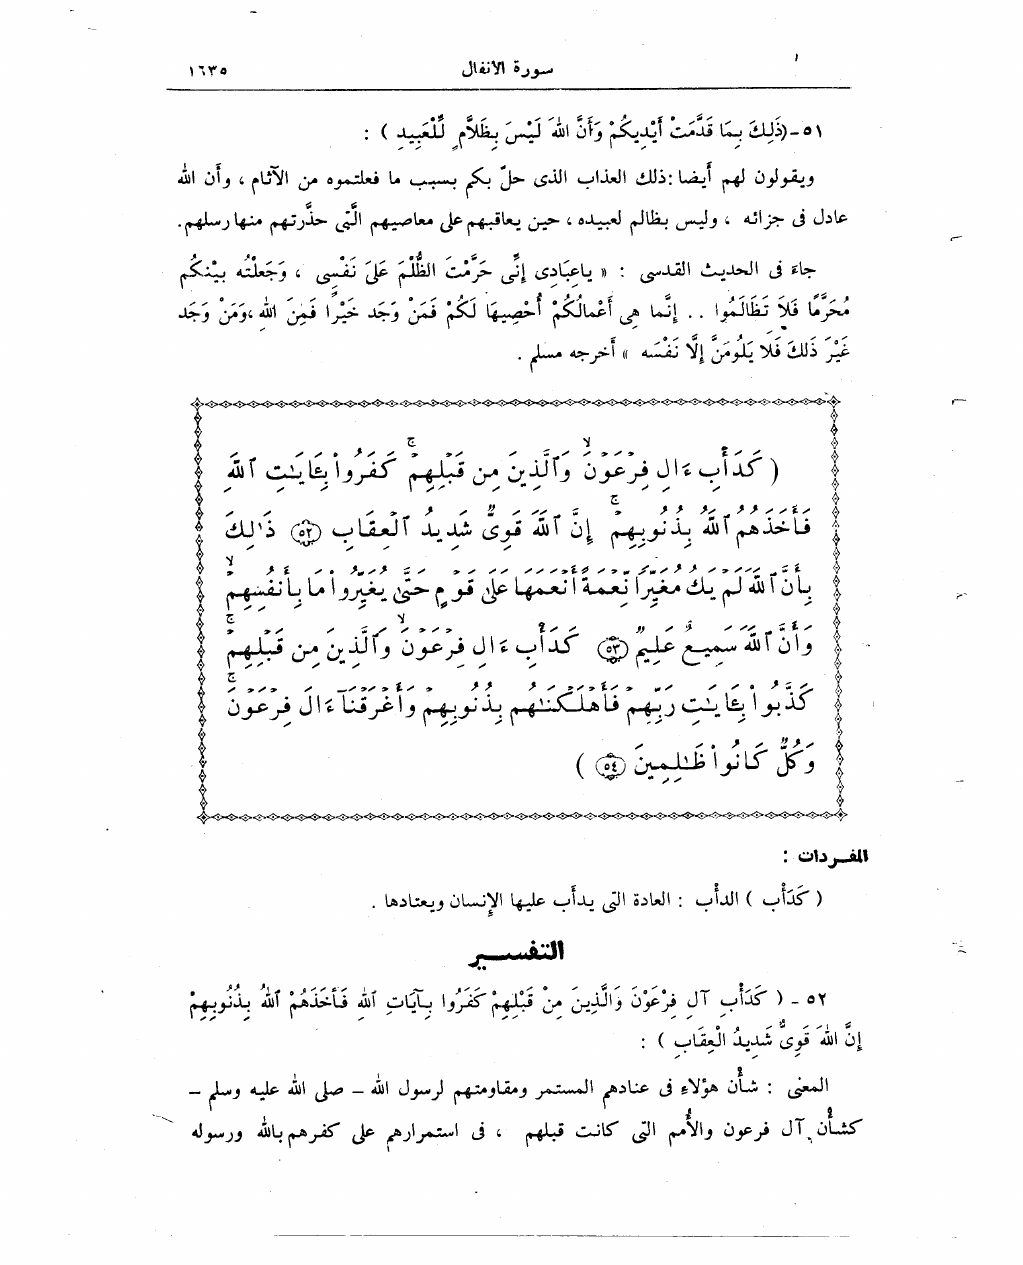 سورة الأنفال ١٦٣٥
٥١-(ذَلِكَ بِمَا قَدَّمَتْ أَيْدِيكُمْ وَأَنَّ اللهَ لَيْسَ بِظَلاَّمٍ لِّلْعَبِيدِ ) :
ويقولون لهم أيضا : ذلك العذاب الذى حلّ بكم بسبب ما فعلتموه من الآثام ، وأن الله
عادل فى جزائه ، وليس بظالم لعبيده ، حين يعاقبهم على معاصيهم الَّتى حذّرتهم منها رسلهم.
جاءَ فى الحديث القدسى : « ياعِبَادِى إِنِّى حَرَّمْتُ الظُّلْمَ عَلَى نَفْسِى ، وَجَعَلْتُه بَيْنَكُم
مُحَرَّمًا فَلاَ تَظَالَمُوا .. إِنَّما هِى أَعْمالُكُمْ أُحْصِيهَا لَكُمْ فَمَنْ وَجَد خَيْرًا فَمِنَ اللهِ ،وَمَنْ وَجَد
غَيْرَ ذَلكَ فَلَا يَلُومَنَّ إِلَّا نَفْسَه » أخرجه مسلم .
( كَدَأْبِ ءَالِ فِرْعَوْنَ ۙ وَٱلَّذِينَ مِن قَبْلِهِمْ ۚ كَفَرُوا۟ بِـَٔايَـٰتِ ٱللَّهِ
فَأَخَذَهُمُ ٱللَّهُ بِذُنُوبِهِمْ ۚ إِنَّ ٱللَّهَ قَوِىٌّ شَدِيدُ ٱلْعِقَابِ ٥٢ ذَٰلِكَ
بِأَنَّ ٱللَّهَ لَمْ يَكُ مُغَيِّرًا نِّعْمَةً أَنْعَمَهَا عَلَىٰ قَوْمٍ حَتَّىٰ يُغَيِّرُوا۟ مَا بِأَنفُسِهِمْ ۙ
وَأَنَّ ٱللَّهَ سَمِيعٌ عَلِيمٌ ٥٣ كَدَأْبِ ءَالِ فِرْعَوْنَ ۙ وَٱلَّذِينَ مِن قَبْلِهِمْ ۚ
كَذَّبُوا۟ بِـَٔايَـٰتِ رَبِّهِمْ فَأَهْلَكْنَـٰهُم بِذُنُوبِهِمْ وَأَغْرَقْنَآ ءَالَ فِرْعَوْنَ ۚ
وَكُلٌّ كَانُوا۟ ظَـٰلِمِينَ ٥٤ )
المفـردات :
( كَدَأْبِ ) الدأْب : العادة التى يدأَب عليها الإِنسان ويعتادها .
التفسـير
٥٢ - ( كَدَأْبِ آلِ فِرْعَوْنَ وَالَّذِينَ مِنْ قَبْلِهِمْ كَفَرُوا بِآيَاتِ اللهِ فَأَخَذَهُمْ اللهُ بِذُنُوبِهِمْ
إِنَّ اللهَ قَوِىٌّ شَدِيدُ الْعِقَابِ ) :
المعنى : شأْن هؤلاءِ فى عنادهم المستمر ومقاومتهم لرسول الله – صلى الله عليه وسلم –
كشأْن آل فرعون والأُمم التى كانت قبلهم ، فى استمرارهم على كفرهم بالله ورسوله